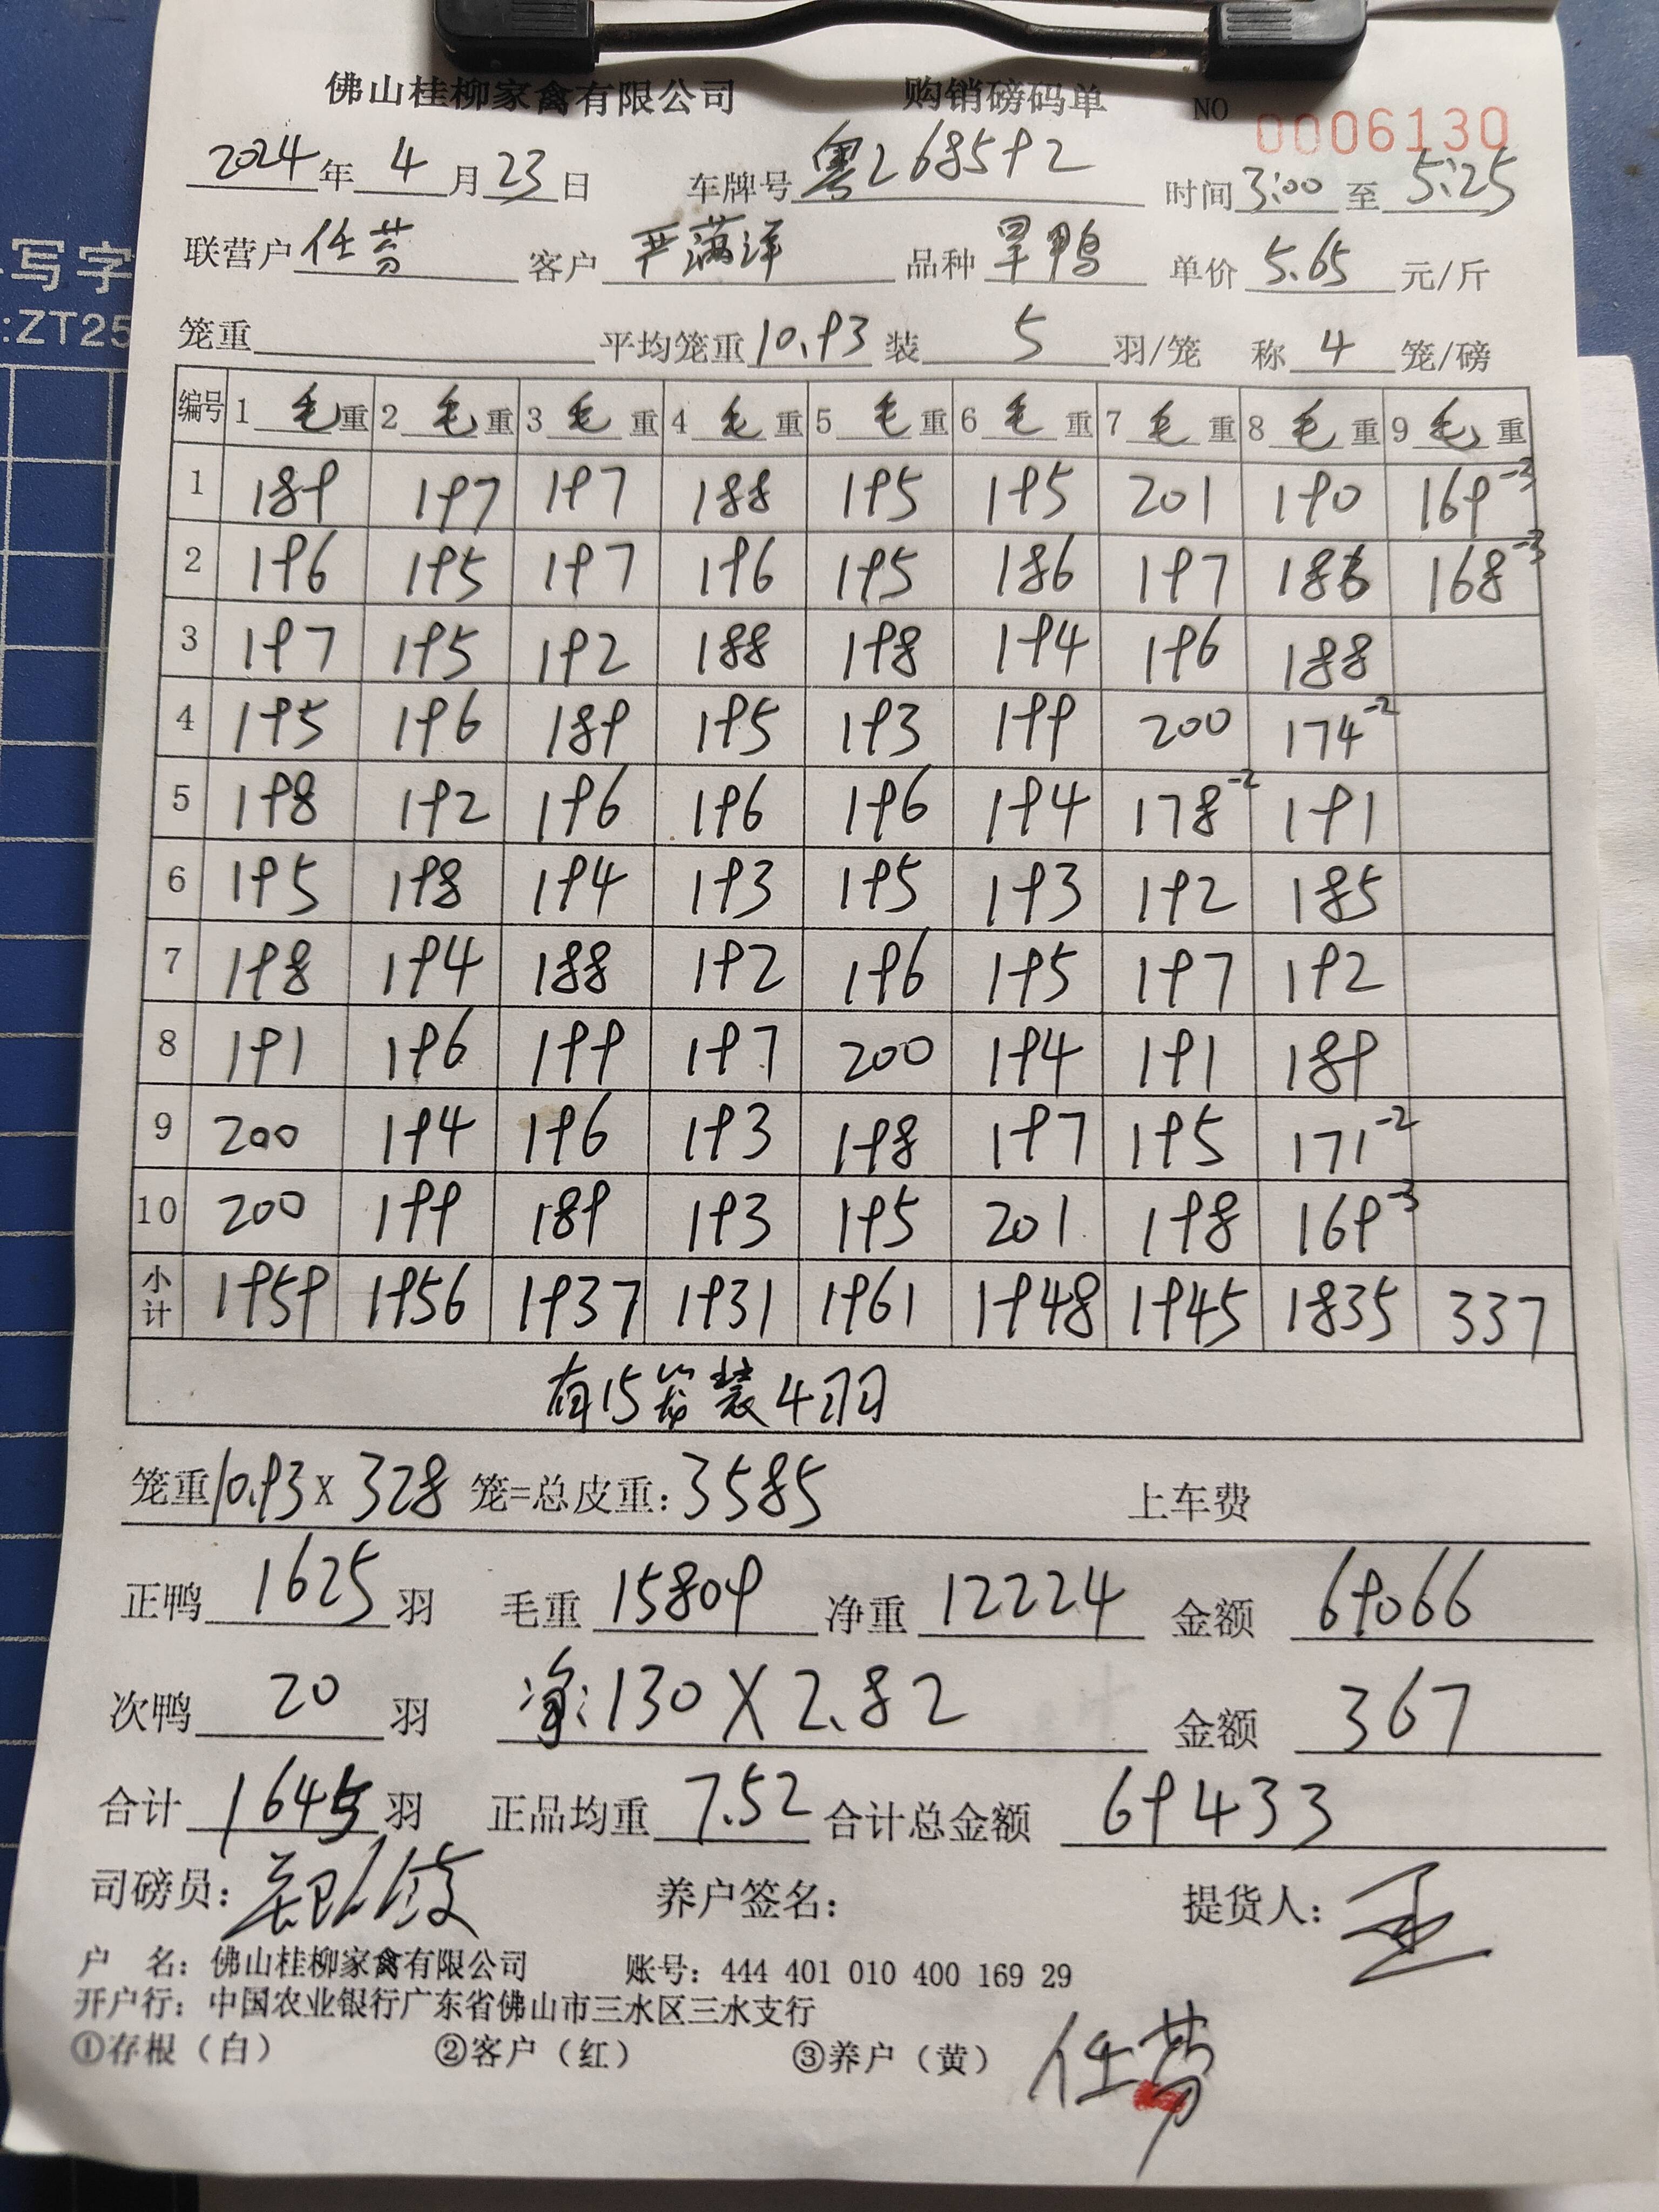 佛山桂柳家禽有限公司 购销磅码单 NO 0006130
2024年4月23日 车牌号 粤Z68592 时间 3:00 至 5:25
联营户 任芬 客户 严满洋 品种 旱鸭 单价 5.65 元/斤
笼重 平均笼重 10.93 装 5 羽/笼 称 4 笼/磅
编号 1 毛重 2 毛重 3 毛重 4 毛重 5 毛重 6 毛重 7 毛重 8 毛重 9 毛重
1 189 197 197 188 195 195 201 190 169-3
2 196 195 197 196 195 186 197 186 168-3
3 197 195 192 188 198 194 196 188
4 195 196 189 195 193 199 200 174-2
5 198 192 196 196 196 194 178-2 191
6 195 198 194 193 195 193 192 185
7 198 194 188 192 196 195 197 192
8 191 196 199 197 200 194 191 189
9 200 194 196 193 198 197 195 171-2
10 200 199 189 193 195 201 198 169-3
小计 1959 1956 1937 1931 1961 1948 1945 1835 337
有15笼装4羽
笼重 10.93 x 328 笼=总皮重: 3585 上车费
正鸭 1625 羽 毛重 15809 净重 12224 金额 69066
次鸭 20 羽 净: 130 X 2.82 金额 367
合计 1645 羽 正品均重 7.52 合计总金额 69433
司磅员: 养户签名: 提货人:
户 名: 佛山桂柳家禽有限公司 账号: 444 401 010 400 169 29
开户行: 中国农业银行广东省佛山市三水区三水支行
①存根（白） ②客户（红） ③养户（黄） 任芬
写字
:ZT25